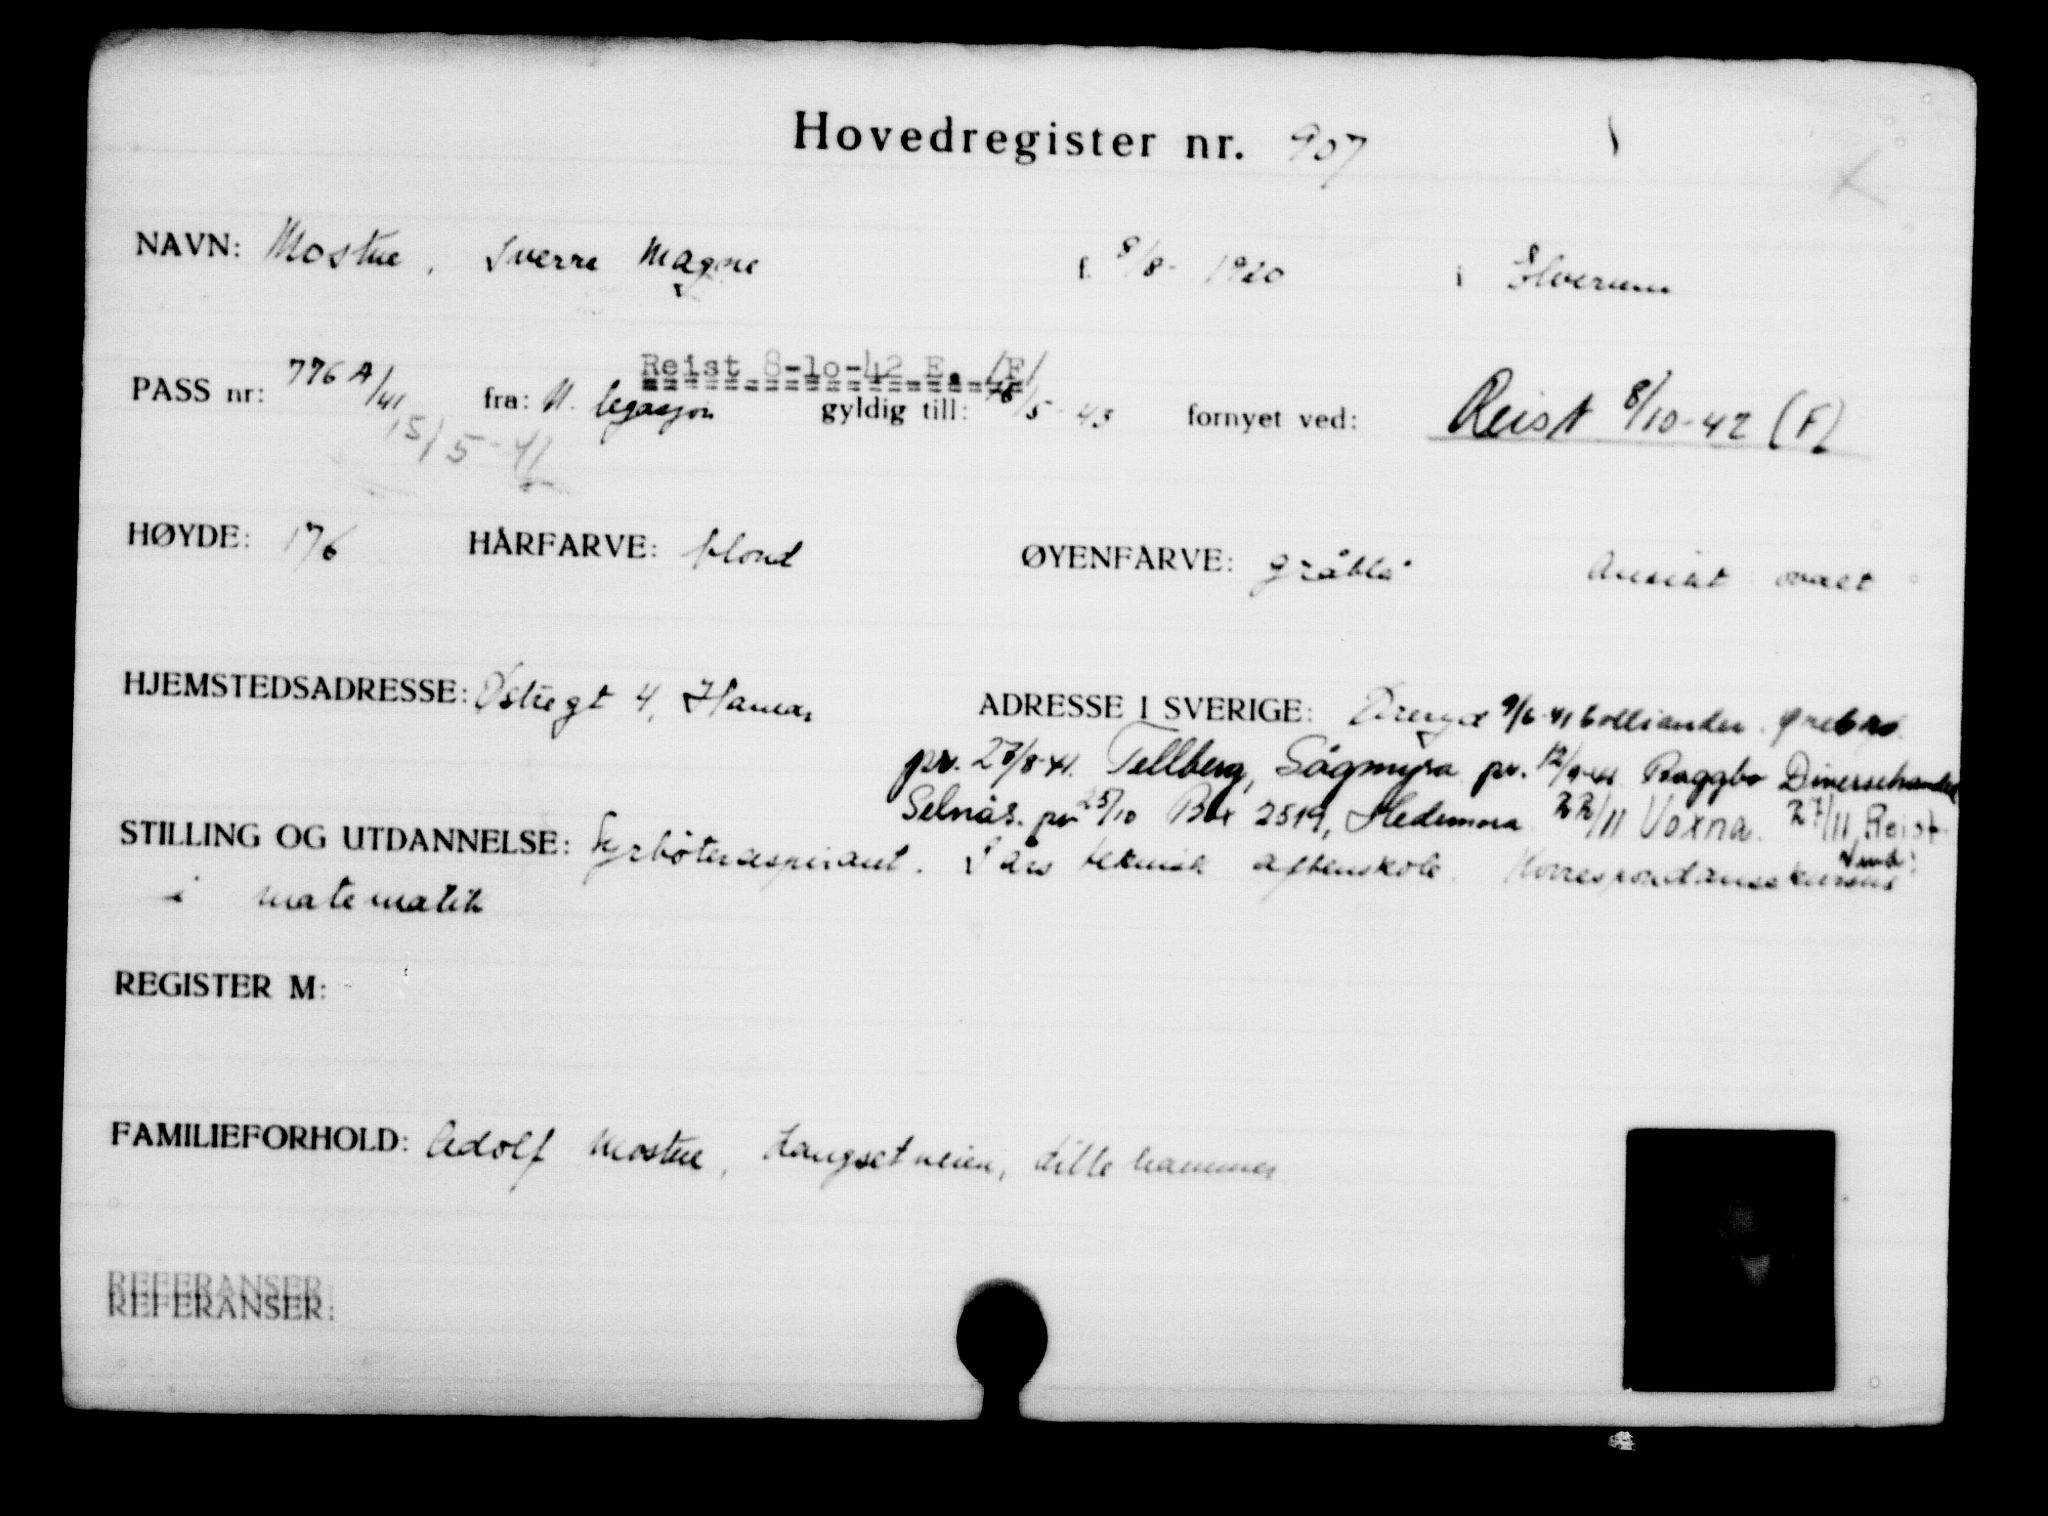 Hovedregister nr. 907
NAVN: Mostue, Sverre Magne f. 9/8- 1920 i Elverum
Reist 8-10-42 E. /F/
PASS nr: 776 A/41 fra: N. legasjon gyldig till: 15/5-43 fornyet ved: Reist 8/10-42 (F)
15/5-41
HØYDE: 176 HÅRFARVE: blond ØYENFARVE: gråblå Ansikt ovalt
HJEMSTEDSADRESSE: Østregt 4, Hamar ADRESSE I SVERIGE: 9/6-41 Ørebro.
pr. 27/8-41. Tellberg, Sågmyra pr. 12/9-41 Baggbo Diversehandel
Selnäs. pr 25/10 Box 2519, Hedemora 22/11 Voxna. 27/11 Reist
STILLING OG UTDANNELSE: Fyrbøteraspirant. års teknisk aftenskole. Korrespondansekursus
i matematik
REGISTER M:
FAMILIEFORHOLD: Adolf Mostue, Langsetveien, Lillehammer
REFERANSER:
REFERANSER: